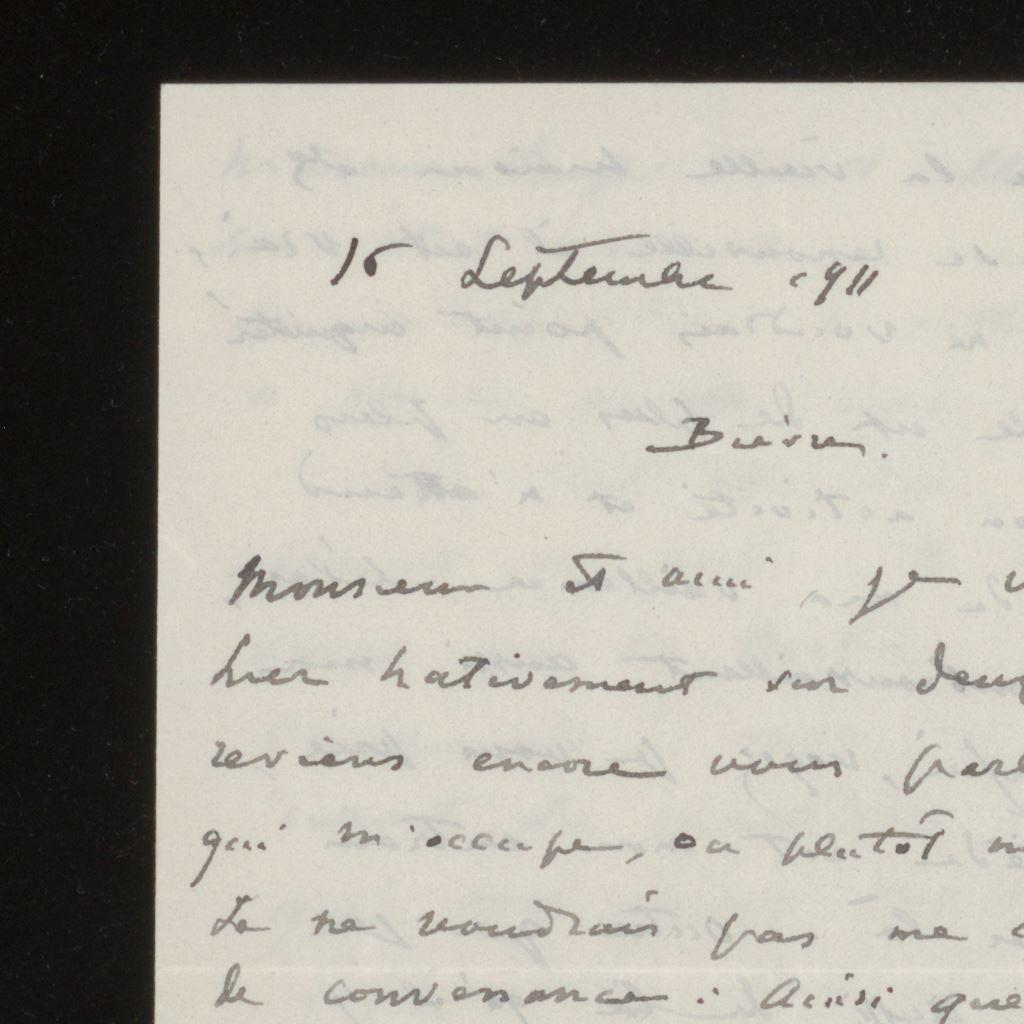 15 Septembre 1911
Bièvres.
Monsieur et ami je
hier hativement sur deux
reviens encore vous parl
qui m'occupe, ou plutôt
Je ne voudrais pas me
de convenance : Ainsi que